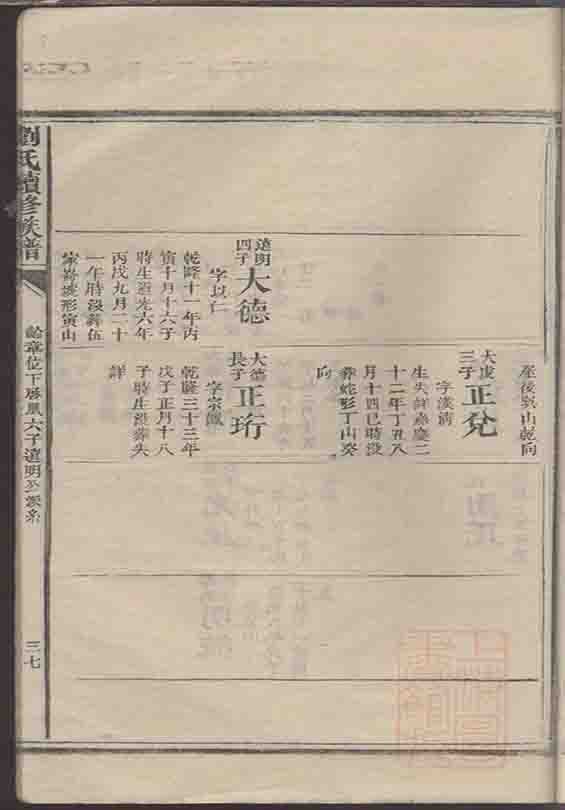 劉氏續修族譜
齡章位下啟鳳六子遠明公派系
三七
遠明四子
大德
字以仁
乾隆十一年丙
寅十月十六子
時生道光六年
丙戌九月二十
一午時沒葬伍
家嵛坡形寅山
屋後巽山乾向
大虔三子
正兌
字漢清
生失詳嘉慶二
十二年丁丑八
月十四巳時沒
葬蛇形丁山癸
向
大德長子
正珩
字宗佩
乾隆三十三年
戊子正月十八
子時生沒葬失
詳